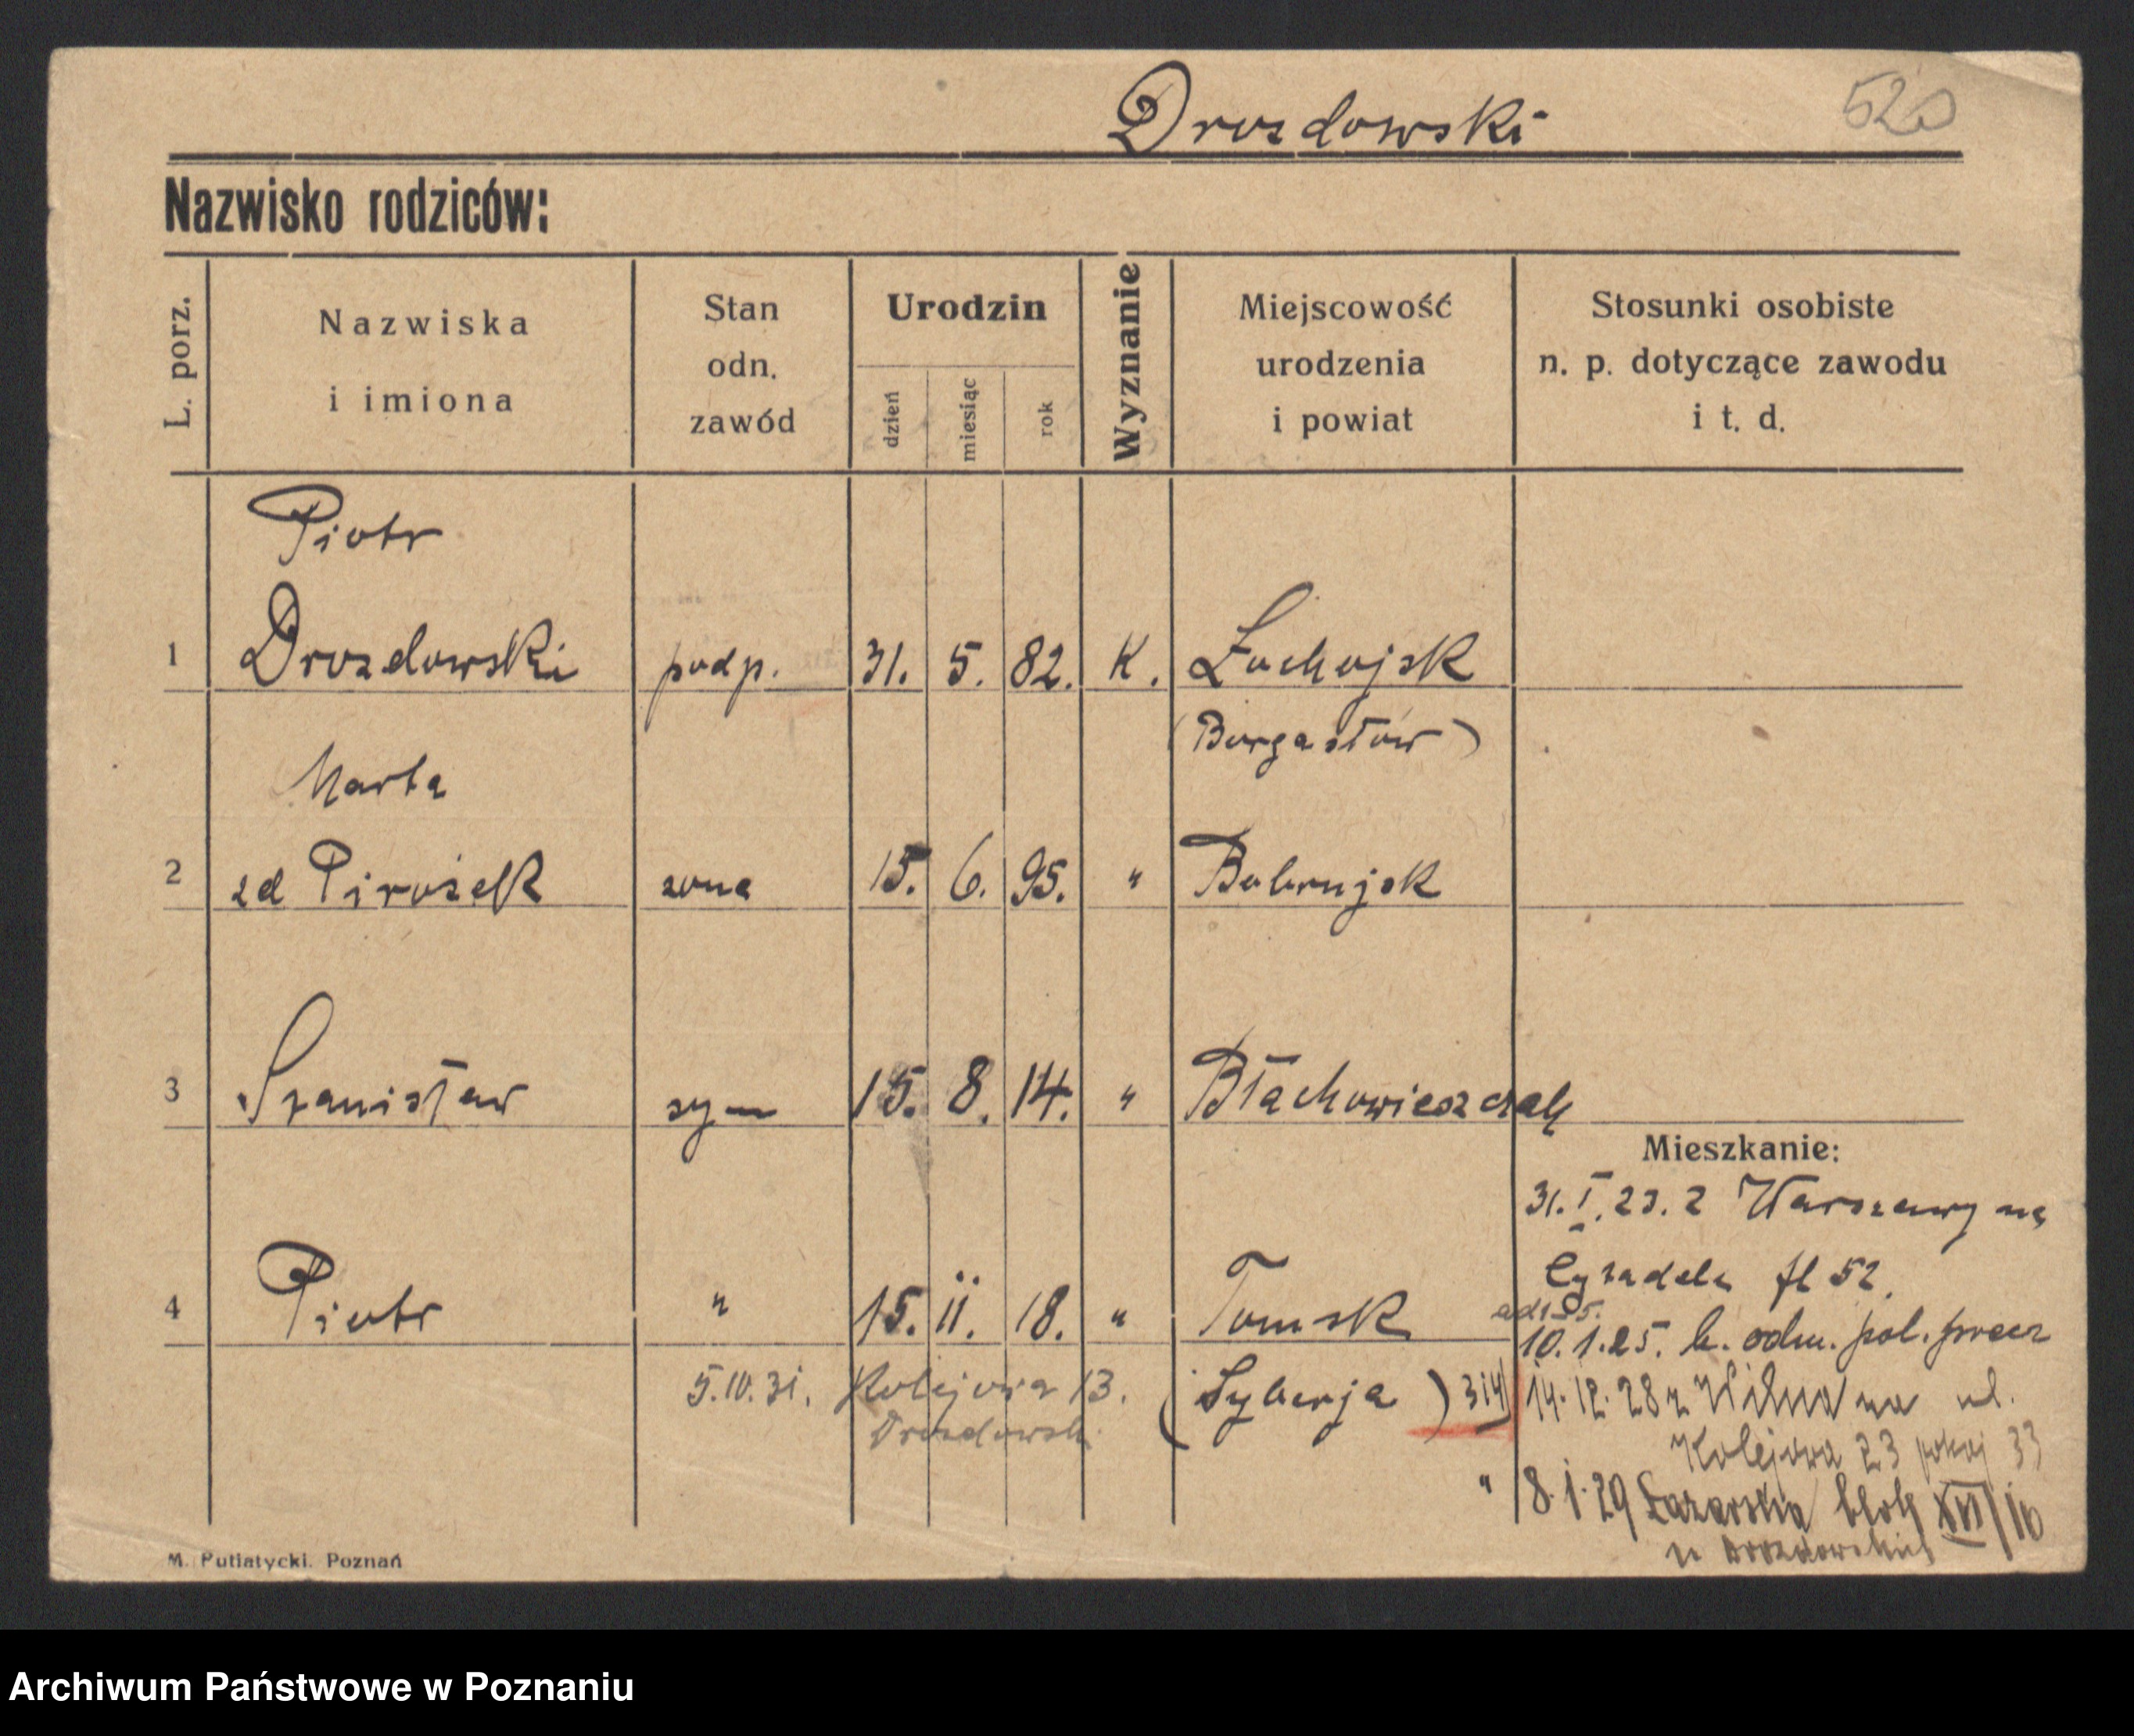 Drozdowski
520
Nazwisko rodziców:
L. porz.
Nazwiska
i imiona
Stan
odn.
zawód
Urodzin
dzień
miesiąc
rok
Wyznanie
Miejscowość
urodzenia
i powiat
Stosunki osobiste
n. p. dotyczące zawodu
i t. d.
Piotr
1 Drozdowski podp. 31. 5. 82. K. Łochojsk
(Borgastów)
Marta
2 zd Pirożek żona 15. 6. 95. " Bobrujsk
3 Stanisław syn 15. 8. 14. "
Mieszkanie:
31. I. 23. z Warszawy na
Cytadela fl 52.
4 Piotr " 15. 11. 18. " Tomsk
10. 1. 25. k. odm. pol. przez
5.10.31. Kolejowa 13. (Syberja) 314 14.12.28 z Wilna na ul.
Drozdowski
Kolejowa 23 pokój 33
" 8.1.29 Łazarska blok XVI/10
u Drozdowskich
M. Putiatycki. Poznań
Archiwum Państwowe w Poznaniu